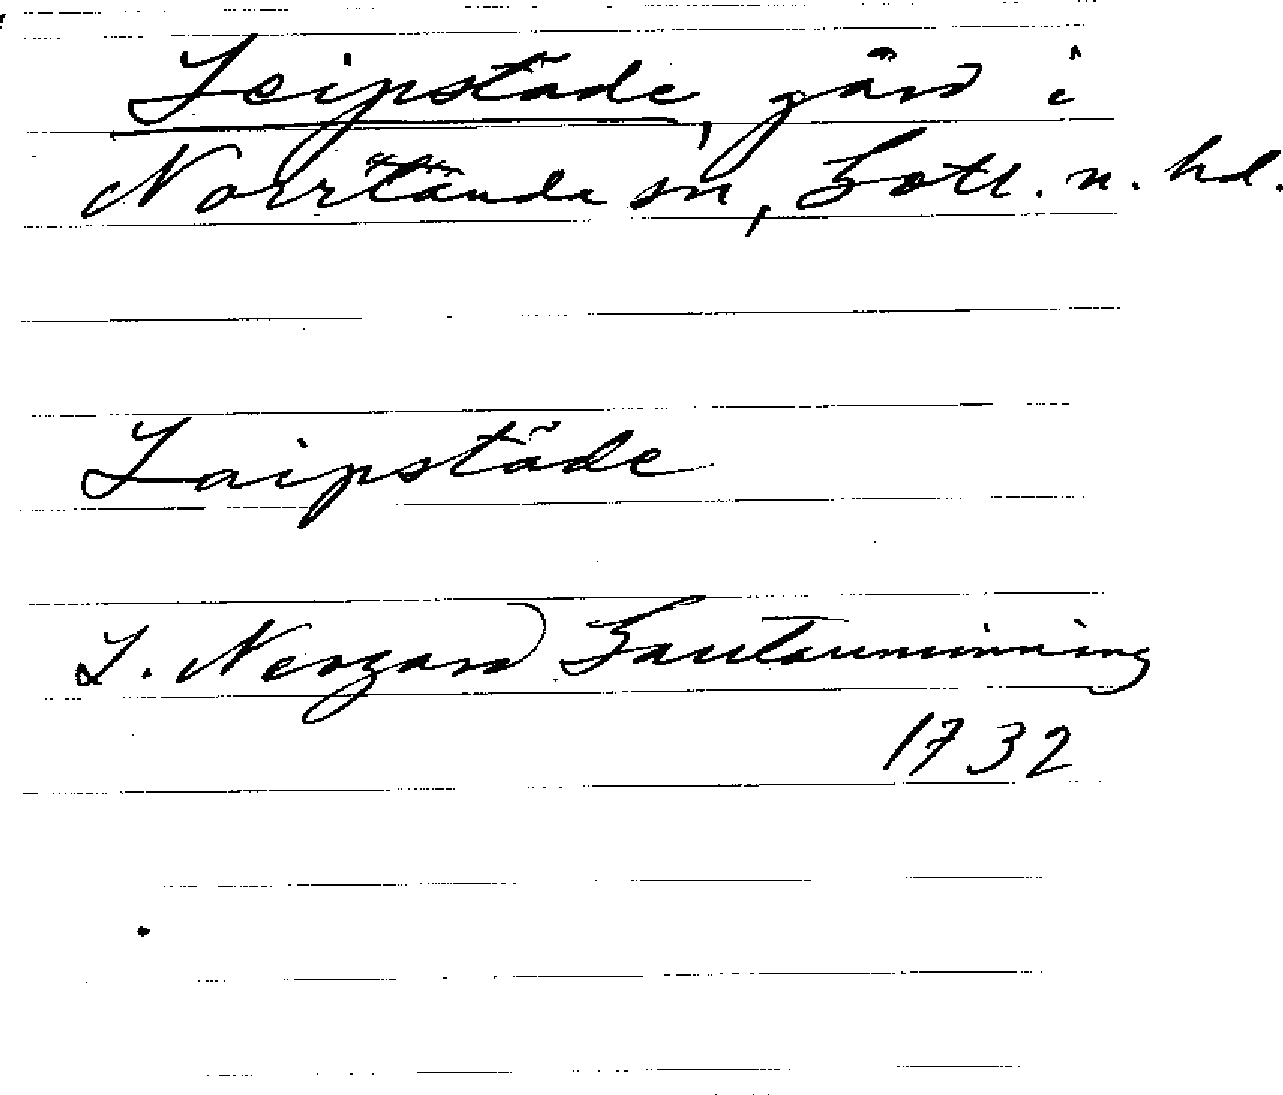 Leipstäde, gård i
Norrlanda sn, Gotl. n. hd.
Laipstäde
L. Neogard Gautauminning
1732